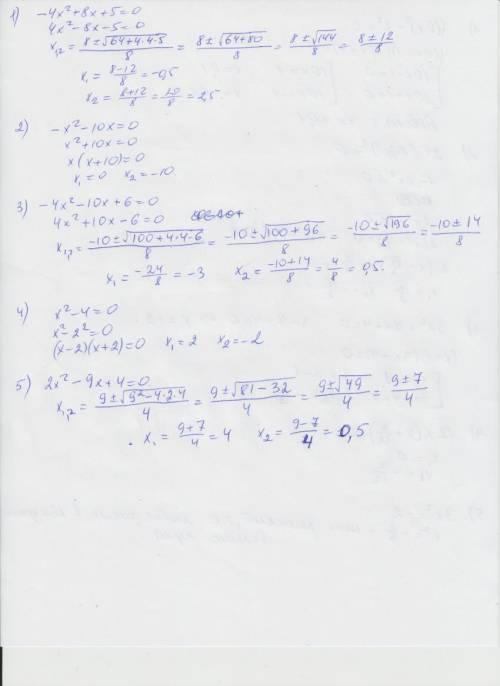 1) -4x²+8x+5=0
4x²-8x-5=0
x₁,₂=(8±√(64+4·4·5))/8 = (8±√(64+80))/8 = (8±√144)/8 = (8±12)/8
x₁=(8-12)/8=-0,5
x₂=(8+12)/8=20/8=2,5
2) -x²-10x=0
x²+10x=0
x(x+10)=0
x₁=0 x₂=-10.
3) -4x²-10x+6=0
4x²+10x-6=0
x₁,₂=(-10±√(100+4·4·6))/8 = (-10±√(100+96))/8 = (-10±√196)/8 = (-10±14)/8
x₁=-24/8=-3 x₂=(-10+14)/8=4/8=0,5.
4) x²-4=0
x²-2²=0
(x-2)(x+2)=0 x₁=2 x₂=-2
5) 2x²-9x+4=0
x₁,₂=(9±√(9²-4·2·4))/4 = (9±√(81-32))/4 = (9±√49)/4 = (9±7)/4
x₁=(9+7)/4=4 x₂=(9-7)/4=0,5